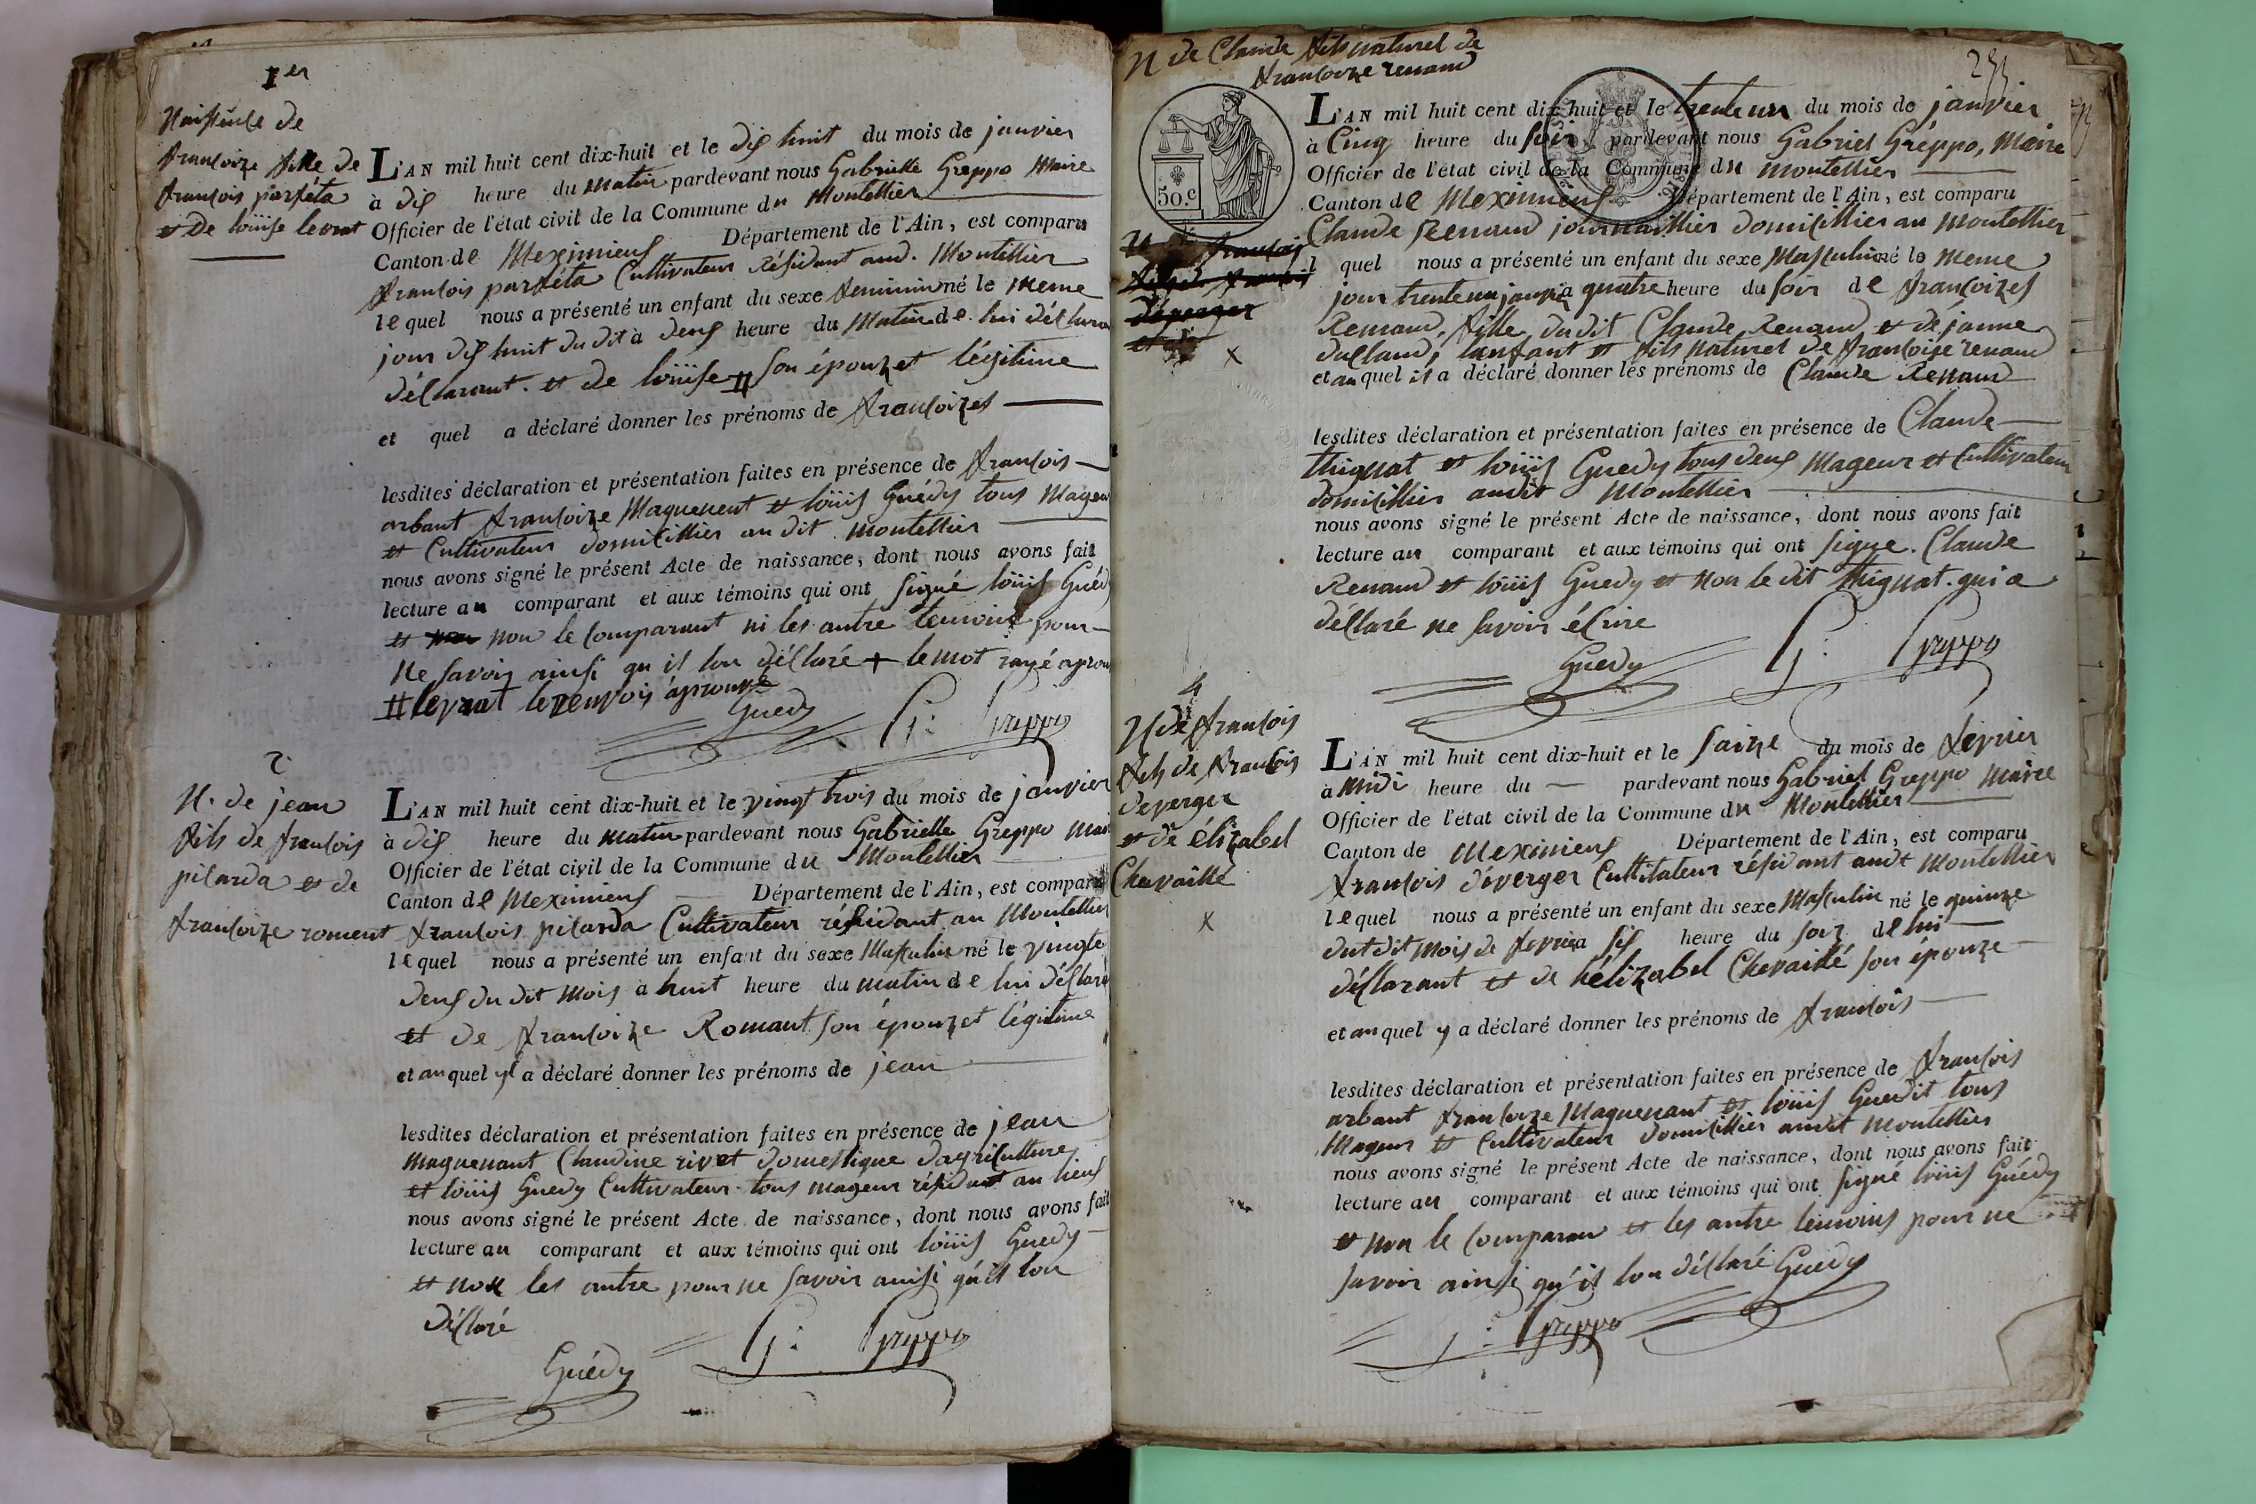 1er
Naissence de
françoize fille de
françois parféta
et de loüise levrat
L'AN mil huit cent dix-huit et le dix huit du mois de janvier
à dix heure du matin pardevant nous Gabrielle Greppo Maire
Officier de l'état civil de la Commune du Montellier
Canton de Meximieux Département de l'Ain, est comparu
françois parféta Cultivateur résidant aud. Montellier
lequel nous a présenté un enfant du sexe feminin né le meme
jour dix huit du dit à deux heure du Matin de lui déclarant
déclarant. et de loüise # son épouzet légitime
et quel a déclaré donner les prénoms de françoizet
lesdites déclaration et présentation faites en présence de françois
arbant françoize Maquenent et loüis Guédy tous Mageur
et Cultivateur domicillier au dit Montellier
nous avons signé le présent Acte de naissance, dont nous avons fait
lecture au comparant et aux témoins qui ont signé loüis Guédy
et non le comparant ni les autre temoins pour
ne savoir ainsi qu il lon déclaré + le mot rayé aprouvé
# levrat le renvois aprouvé
Guedy G: Greppo
2
N. de jean
fils de françois
pilarda et de
françoize roment
L'AN mil huit cent dix-huit et le vingt trois du mois de janvier
à dix heure du matin pardevant nous Gabrielle Greppo Maire
Officier de l'état civil de la Commune du Montellier
Canton de Meximieux Département de l'Ain, est comparu
françois pilarda Cultivateur résidant au Montellier
lequel nous a présenté un enfant du sexe Masculin né le vingte
deux du dit mois à huit heure du matin de lui déclarant
et de françoize Romant son épouzet légitime
et au quel yl a déclaré donner les prénoms de jean
lesdites déclaration et présentation faites en présence de jean
maquenant Claudine rivet domestique dagriculture
et loüis Guedy Cultivateur tous mageur résidant au lieux
nous avons signé le présent Acte de naissance, dont nous avons fait
lecture au comparant et aux témoins qui ont loüis Guedy
et non les autre pour ne savoir ainsi qu'il lon
déclaré
Guédy G: Greppo
N de Claude fils naturel de
françoize renaud
50. c
L'AN mil huit cent dix-huit et le trente un du mois de janvier
à Cinq heure du soir pardevant nous Gabriel Gréppo, Maire
Officier de l'état civil de la Commune du Montellier
Canton de Meximieux Département de l'Ain, est comparu
Claude Renaud journaillier domicillier au Montellier
l quel nous a présenté un enfant du sexe Masculin né le meme
jour trente un janvier à quatre heure du soir de françoizes
Renaud, fille du dit Claude Renaud et de janne
, lanfant et fils naturel de françoise renaud
et au quel il a déclaré donner les prénoms de Claude Renaud
lesdites déclaration et présentation faites en présence de Claude
thignat et loüis Guedy tous deux Mageur et Cultivateur
domicillier audit Montellier
nous avons signé le présent Acte de naissance, dont nous avons fait
lecture au comparant et aux témoins qui ont signe. Claude
Renaud et loüis Guedy et non le dit thignat. qui a
déclaré ne savoir écrire
Guedy G: Greppo
françois
déperger
X
4
N de françois
fils de françois
deperger
et de élizabel
Chevaillé
X
L'AN mil huit cent dix-huit et le saize du mois de fevrier
à Midi heure du — pardevant nous Gabriel Greppo Maire
Officier de l'état civil de la Commune du Montellier
Canton de Meximieux Département de l'Ain, est comparu
françois déverger Cultivateur résidant audt Montellier
lequel nous a présenté un enfant du sexe Masculin né le quinze
dudit mois de fevrier à six heure du soir de lui
déclarant et de hélizabel Chevaillé son épouze
et au quel y a déclaré donner les prénoms de françois
lesdites déclaration et présentation faites en présence de françois
arbant françoize Maquenant et loüis Guedit tous
Mageur et Cultivateur domicillier audit Montellier
nous avons signé le présent Acte de naissance, dont nous avons fait
lecture au comparant et aux témoins qui ont signé loüis Guédy
et non le comparan et les autre temoins pour ne
savoir ainsi qu'il lon déclaré Guedy
G: Greppo